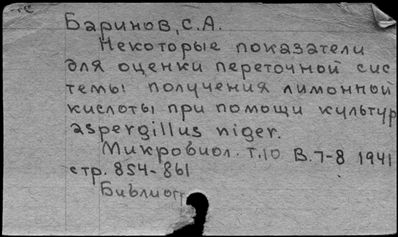 Баринов, С.А.
Некоторые показатели
для оценки переточной сис
темы получения лимонной
кислоты при помощи культур
aspergillus niger.
Микробиол. Т.10 В.7-8 1941
стр. 854-861
Библиогр